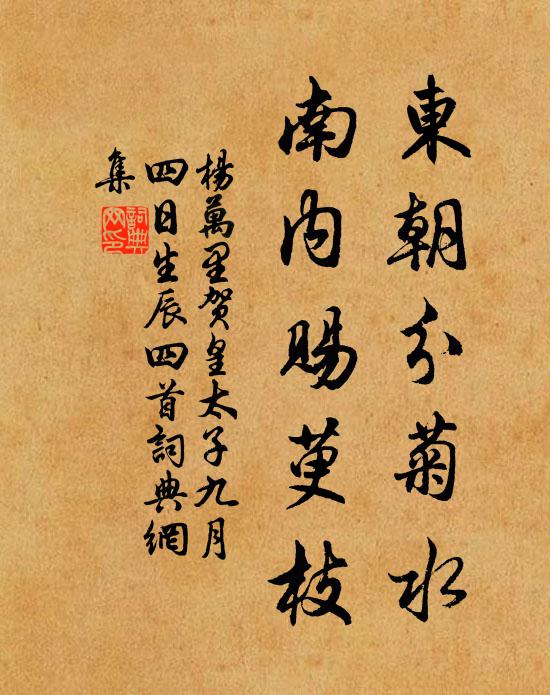 東朝分菊水
南内賜萸枝
楊萬里賀皇太子九月
四日生辰四首詞典網
集
詞典
网印